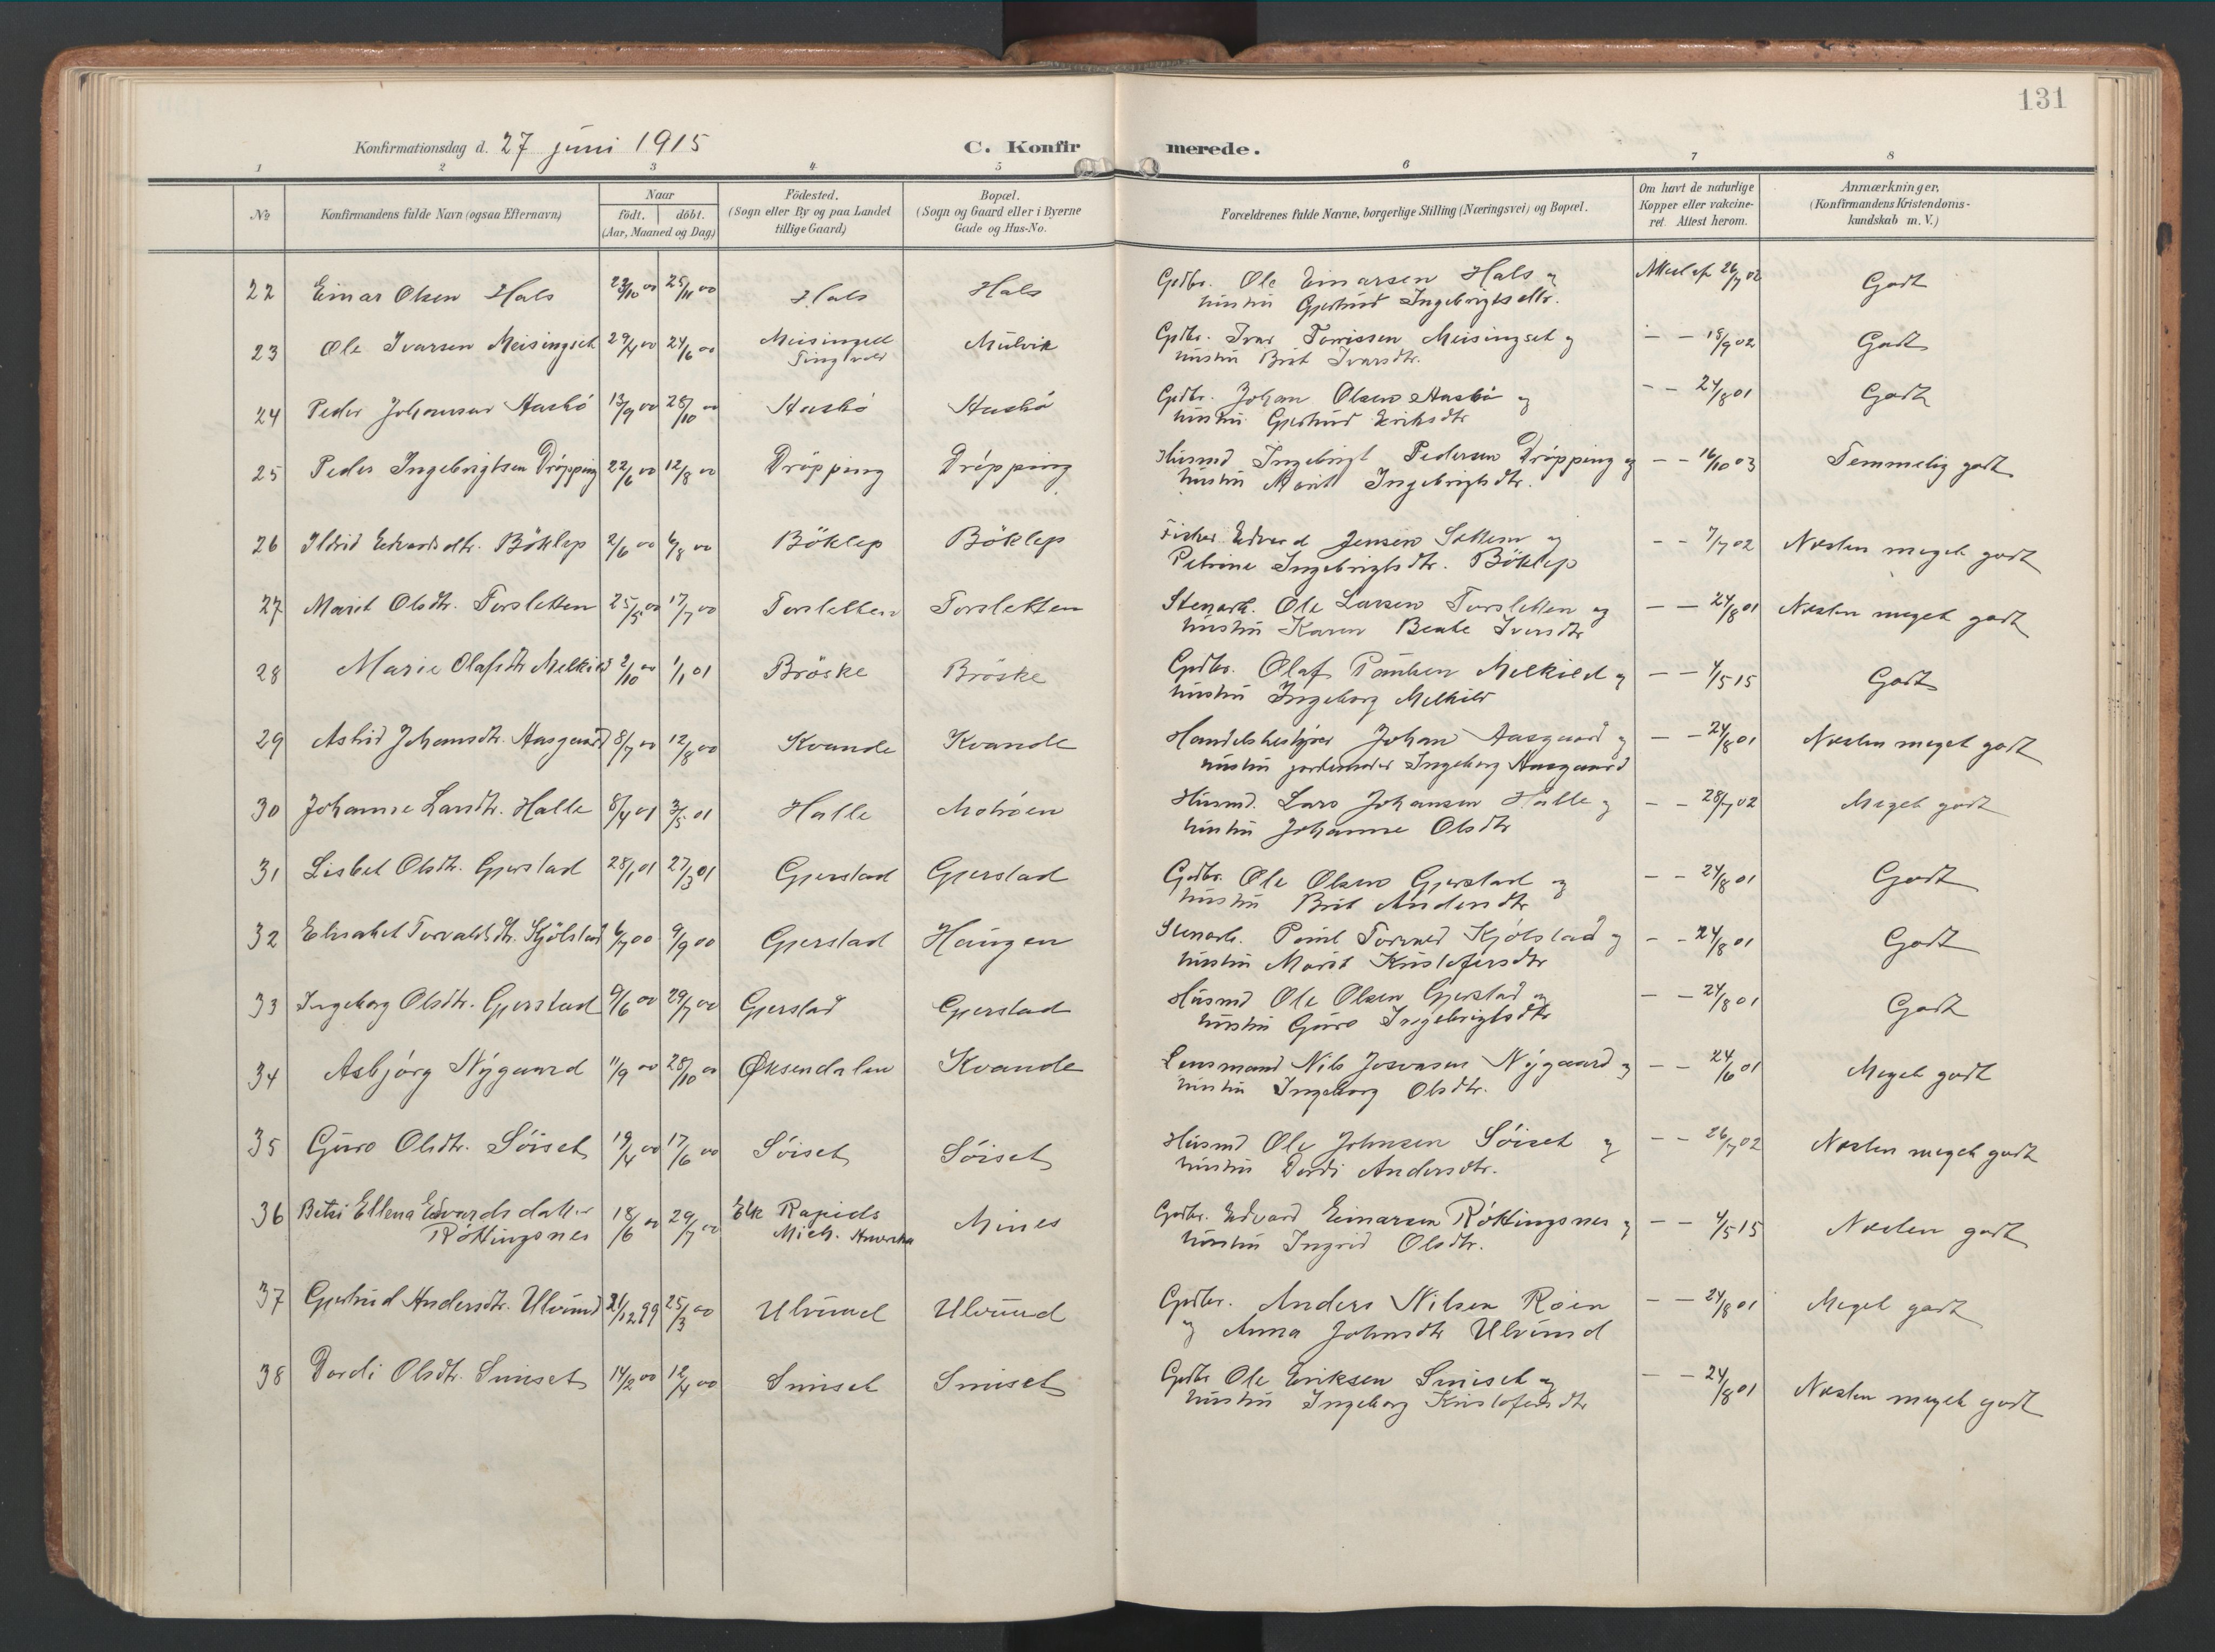 131
Konfirmationsdag d. 27 juni 1915 C. Konfirmerede.
1 2 3 4 5 6 7 8
No Konfirmandens fulde Navn (ogsaa Efternavn) Naar født. døbt. (Aar, Maaned og Dag) Fødested. (Sogn eller By og paa Landet tillige Gaard) Bopæl. (Sogn og Gaard eller i Byerne Gade og Hus-No. Forældrenes fulde Navne, borgerlige Stilling (Næringsvei) og Bopæl. Om havt de naturlige Kopper eller vakcineret. Attest herom. Anmærkninger. (Konfirmandens Kristendomskundskab m. V.)
22 Einar Olsen Hals 25/11 00 Hals Hals Grdbr. Ole Einarsen Hals og Attest af 26/7 02 Godt
hustru Gjertrud Ingebrigtsdtr.
23 Ole Ivarsen Meisingset 29/4 00 24/6 00 Meisingset Tingvold Mulvik Grdbr. Ivar Torrissen Meisingset og - - 18/9 02 Godt
hustru Brit Ivarsdtr.
24 Peder Johansen Aasbö 13/9 00 28/10 00 Aasbö Aasbö Grdbr. Johan Olsen Aasbö og - - 24/8 01 Godt
hustru Gjertrud Eriksdtr
25 Peder Ingebrigtsen Dröpping 22/6 00 12/8 00 Dröpping Dröpping Husmd Ingebrigt Pedersen Dröpping og - - 16/10 03 Temmelig godt
hustru Marit Ingebrigtsdtr.
26 Ildrid Edvardsdtr. Böklep 2/6 00 /8 00 Böklep Böklep Fisker Edvard Jensen og - - 7/7 02 Næsten meget godt
Petrine Ingebrigtsdtr. Böklep
27 Marit Olsdtr. Torsletten 25/5 00 17/7 00 Torsletten Torsletten Stenarb. Ole Larsen Torsletten og - - 24/8 01 Næsten meget godt
hustru Karen Beate Iversdtr
28 Marie Olafsdtr Melkild 2/10 00 1/1 01 Bröske Bröske Grdbr. Olaf Paulsen Melkild og - - 4/5 15 Godt
hustru Ingeborg Melkild
29 Astrid Johansdtr. Aasgaard 8/7 00 12/8 00 Kvande Kvande Handelsbestyrer Johan Aasgaard og - - 24/8 01 Næsten meget godt
hustru jordemoder Ingeborg Aasgaard
30 Johanne Larsdtr. Halle 8/4 01 3/5 01 Halle Motröen Husmd. Lars Johansen Halle og - - 28/7 02 Meget godt
hustru Johanne Olsdtr
31 Lisbet Olsdtr. Gjerstad 28/1 01 27/3 01 Gjerstad Gjerstad Grdbr. Ole Olsen Gjerstad og - - 24/8 01 Godt
hustru Brit Andersdtr
32 Elisabet Torvaldsdtr. Kjölstad 6/7 00 9/9 00 Gjerstad Haugen Stenarb. Paul Torvald Kjölstad og - - 24/8 01 Godt
hustru Marit Kristofersdtr
33 Ingeborg Olsdtr. Gjerstad 9/6 00 29/7 00 Gjerstad Gjerstad Husmd Ole Olsen Gjerstad og - - 24/8 01 Godt
hustru Guro Ingebrigtsdtr
34 Asbjörg Nygaard 11/9 00 28/10 00 Øksendalen Kvande Lensmand Nils Josvasen Nygaard og - - 24/6 01 Meget godt
hustru Ingeborg Olsdtr.
35 Guro Olsdtr. Söiset 19/4 00 17/6 00 Söiset Söiset Husmd Ole Johnsen Söiset og - - 26/7 02 Næsten meget godt
hustru Dordi Andersdtr.
36 Betsi Ellena Edvardsdatter Röttingsnes 18/6 00 29/7 00 Elk Rapids Mich. Amerika Mines Gardbr. Edvard Einarsen Röttingsnes og - - 4/5 15 Næsten godt
hustru Ingrid Olsdtr.
37 Gjertrud Andersdtr. Ulvund 21/12 99 25/3 00 Ulvund Ulvund Grdbr. Anders Nilsen Röen - - 24/8 01 Meget godt
og Anna Johnsdtr Ulvund
38 Dordi Olsdtr. Smiset 14/2 00 12/4 00 Smiset Smiset Grdbr Ole Eriksen Smiset og - - 24/8 01 Næsten meget godt
hustru Ingeborg Kristofersdtr